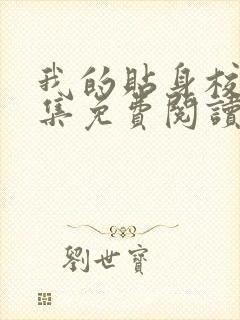 我的貼身校
集免費閱讀
劉世寶